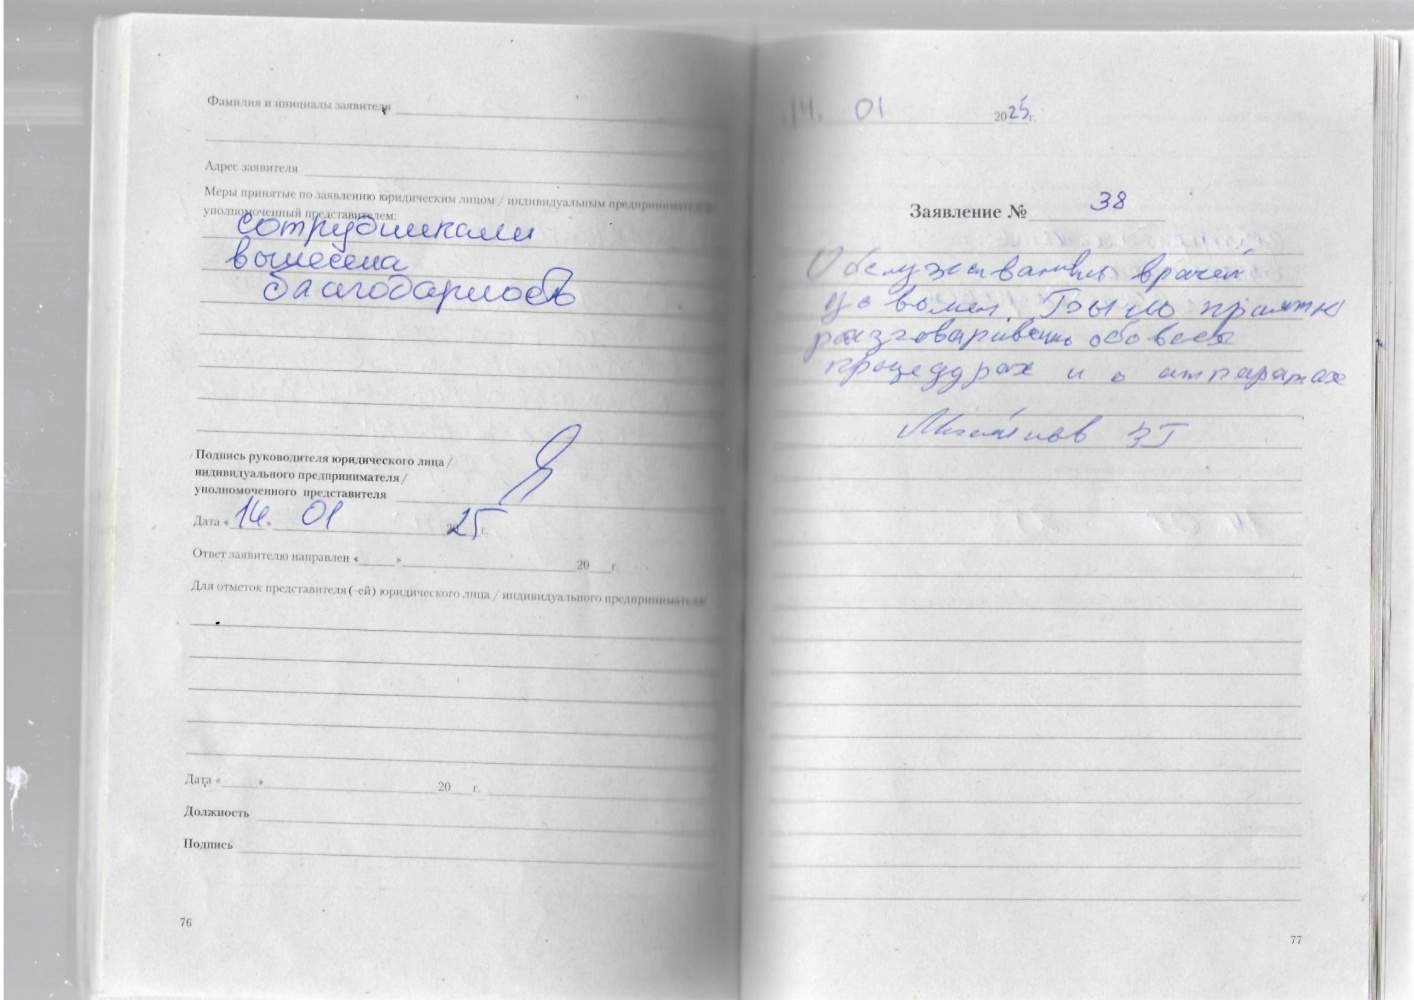 Фамилия и инициалы заявителя
Адрес заявителя
Меры принятые по заявлению юридическим лицом / индивидуальным предпринимателем
уполномоченный представителем:
сотрудниками
вынесена
благодарность
Подпись руководителя юридического лица /
индивидуального предпринимателя /
уполномоченного представителя
Дата « 14 » 01 2025 г.
Ответ заявителю направлен « » 20 г.
Для отметок представителя (-ей) юридического лица / индивидуального предпринимателя
Дата « » 20 г.
Должность
Подпись
76
14. 01 2025 г.
Заявление № 38
Обслуживанием врачей
доволен. Было приятно
разговаривать обо всех
процедурах и о аппаратах
77